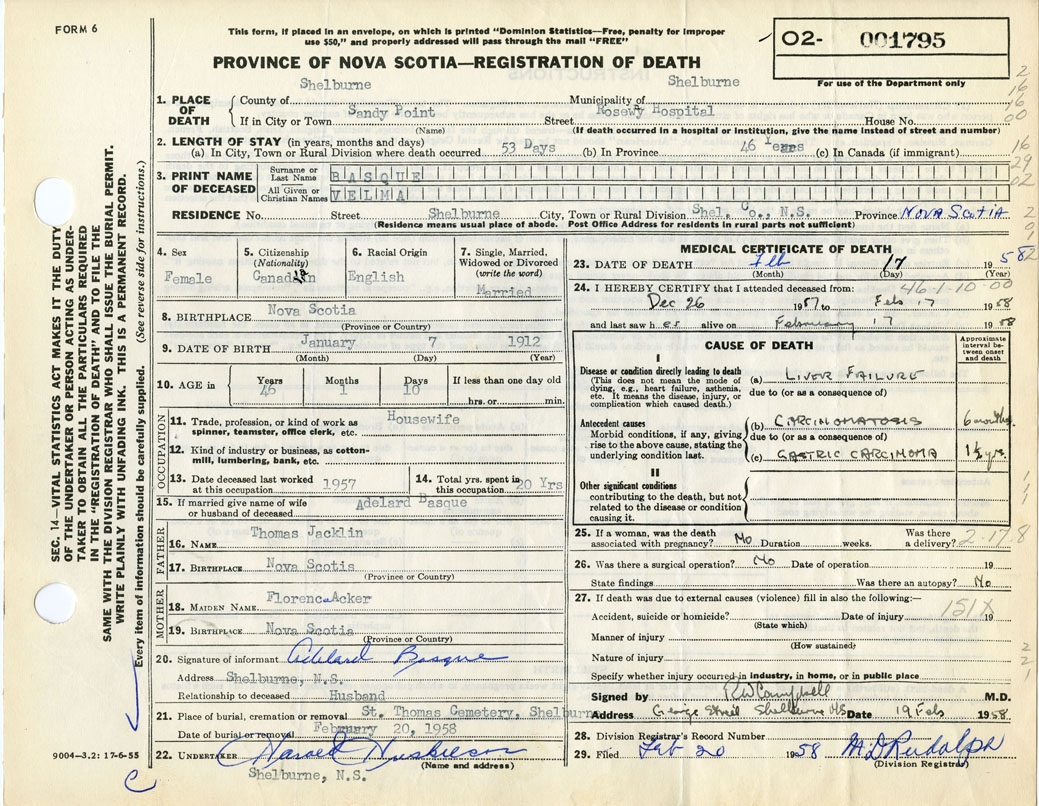 FORM 6
This form, if placed in an envelope, on which is printed "Dominion Statistics—Free, penalty for improper
use $50," and properly addressed will pass through the mail "FREE"
02- 001795
For use of the Department only
PROVINCE OF NOVA SCOTIA—REGISTRATION OF DEATH
Shelburne Shelburne
1. PLACE OF DEATH { County of Municipality of
Sandy Point Roseway Hospital
If in City or Town Street House No.
(Name) (If death occurred in a hospital or institution, give the name instead of street and number)
2. LENGTH OF STAY (in years, months and days)
(a) In City, Town or Rural Division where death occurred 53 Days (b) In Province 46 Years (c) In Canada (if immigrant)
3. PRINT NAME OF DECEASED
Surname or Last Name BASQUE
All Given or Christian Names VELMA
RESIDENCE No. Street Shelburne City, Town or Rural Division Shel. Co., N.S. Province NOVA SCOTIA
(Residence means usual place of abode. Post Office Address for residents in rural parts not sufficient)
4. Sex
Female
5. Citizenship
(Nationality)
Canadian
6. Racial Origin
English
7. Single, Married,
Widowed or Divorced
(write the word)
Married
8. BIRTHPLACE Nova Scotia
(Province or Country)
9. DATE OF BIRTH January 7 1912
(Month) (Day) (Year)
10. AGE in Years Months Days If less than one day old
46 1 10 hrs. or min.
OCCUPATION
11. Trade, profession, or kind of work as Housewife
spinner, teamster, office clerk, etc.
12. Kind of industry or business, as cotton-
mill, lumbering, bank, etc.
13. Date deceased last worked
at this occupation 1957
14. Total yrs. spent in
this occupation 20 Yrs
15. If married give name of wife
or husband of deceased Adelard Basque
FATHER
16. NAME Thomas Jacklin
17. BIRTHPLACE Nova Scotis
(Province or Country)
MOTHER
18. MAIDEN NAME Florence Acker
19. BIRTHPLACE Nova Scotia
(Province or Country)
20. Signature of informant Adelard Basque
Address Shelburne, N.S.
Relationship to deceased Husband
21. Place of burial, cremation or removal St. Thomas Cemetery, Shelburne
Date of burial or removal February 20, 1958
22. UNDERTAKER Harold
(Name and address)
Shelburne, N.S.
MEDICAL CERTIFICATE OF DEATH
23. DATE OF DEATH Feb 17 1958
(Month) (Day) (Year)
46-1-10-00
24. I HEREBY CERTIFY that I attended deceased from:
Dec 26 1957 to Feb 17 1958
and last saw her alive on February 17 1958
CAUSE OF DEATH
Approximate
interval be-
tween onset
and death
I
Disease or condition directly leading to death
(This does not mean the mode of
dying, e.g., heart failure, asthenia,
etc. It means the disease, injury, or
complication which caused death.)
(a) LIVER FAILURE
due to (or as a consequence of)
Antecedent causes
Morbid conditions, if any, giving
rise to the above cause, stating the
underlying condition last.
(b) CARCINOMATOSIS 6 months
due to (or as a consequence of)
(c) GASTRIC CARCINOMA 1½ yrs.
II
Other significant conditions
contributing to the death, but not
related to the disease or condition
causing it.
25. If a woman, was the death
associated with pregnancy? No Duration weeks. Was there
a delivery?
2-17.8
26. Was there a surgical operation? No Date of operation 19
State findings Was there an autopsy? No
27. If death was due to external causes (violence) fill in also the following:—
151X
Accident, suicide or homicide? Date of injury 19
(State which)
Manner of injury
(How sustained)
Nature of injury
Specify whether injury occurred in industry, in home, or in public place
Signed by RW Campbell M.D.
Address George Street Shelburne NS Date 19 Feb 1958.
28. Division Registrar's Record Number
29. Filed Feb 20 1958 Rudolph
(Division Registrar)
SEC. 14—VITAL STATISTICS ACT MAKES IT THE DUTY
OF THE UNDERTAKER OR PERSON ACTING AS UNDER-
TAKER TO OBTAIN ALL THE PARTICULARS REQUIRED
IN THE "REGISTRATION OF DEATH" AND TO FILE THE
SAME WITH THE DIVISION REGISTRAR WHO SHALL ISSUE THE BURIAL PERMIT.
WRITE PLAINLY WITH UNFADING INK. THIS IS A PERMANENT RECORD.
Every item of information should be carefully supplied. (See reverse side for instructions.)
9004—3.2: 17-6-55
C
2
16
16
00
16
29
02
2
0
2
1
1
2
2
1